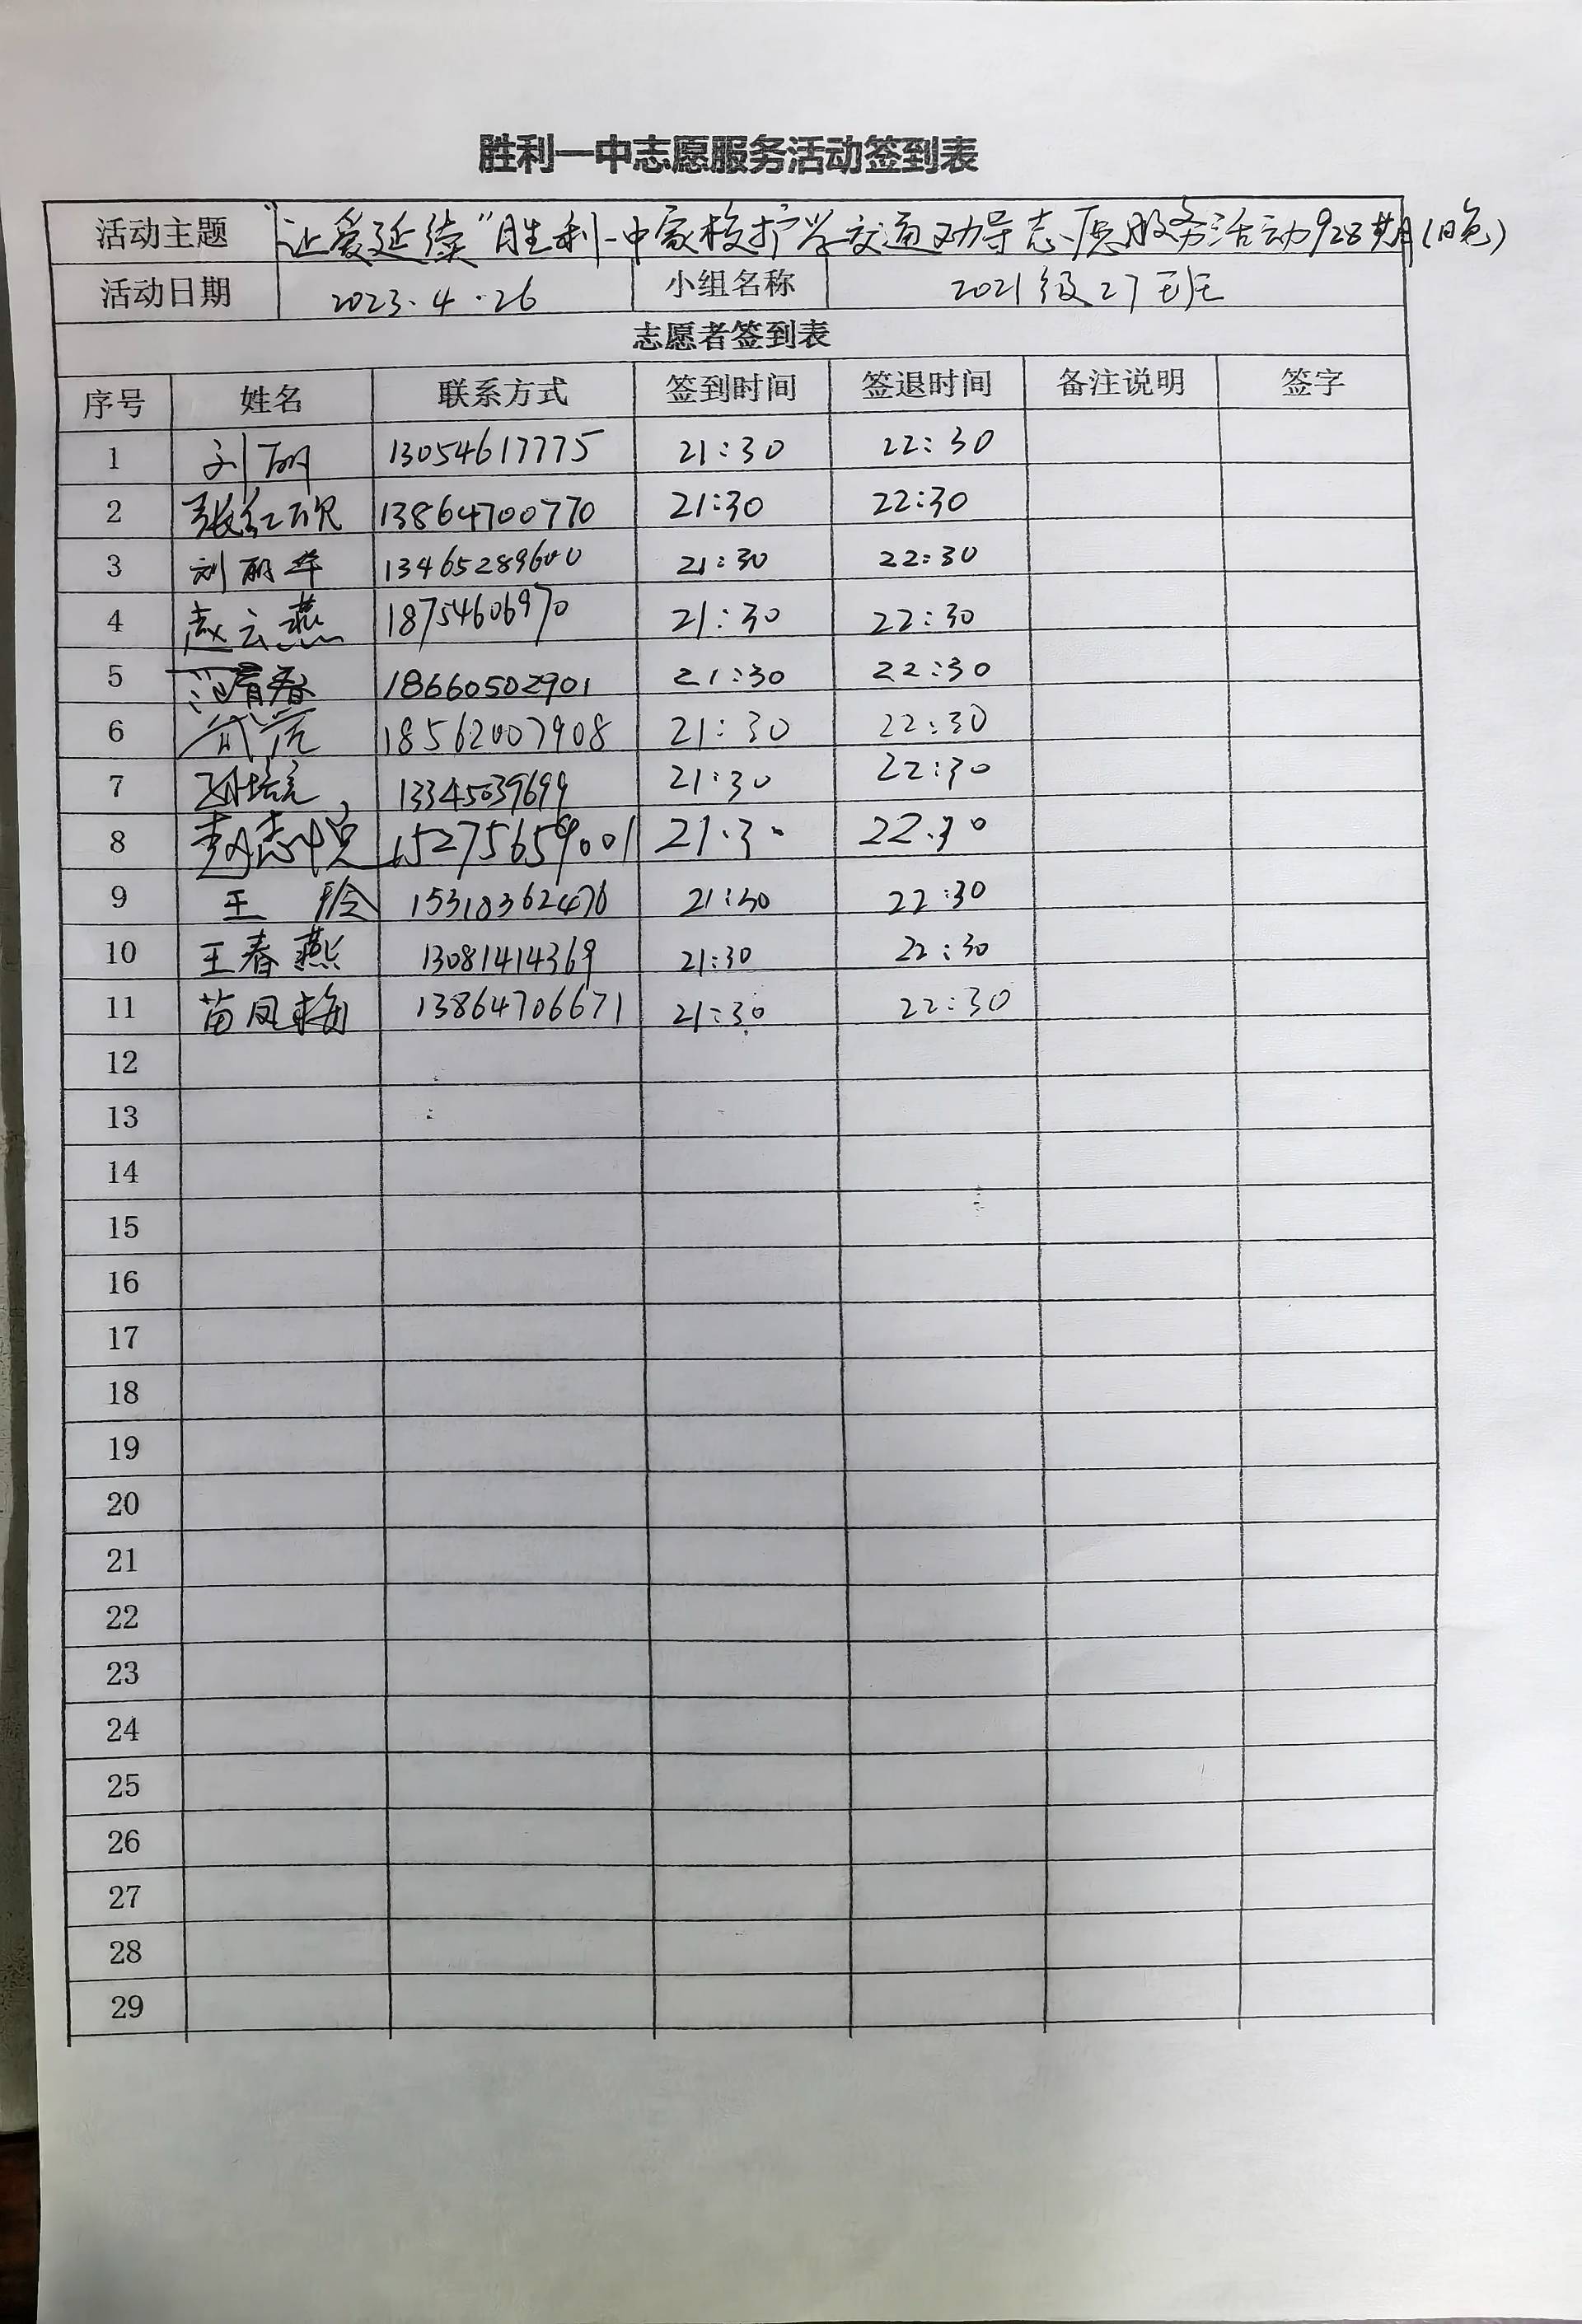 胜利一中志愿服务活动签到表
活动主题 "让爱延续"胜利一中家校护学交通劝导志愿服务活动928期(晚)
活动日期 2023.4.26 小组名称 2021级27班
志愿者签到表
序号 姓名 联系方式 签到时间 签退时间 备注说明 签字
1 刘丽 13054617775 21:30 22:30
2 张红欣 13864700770 21:30 22:30
3 刘丽华 13465289600 21:30 22:30
4 赵云燕 18754606970 21:30 22:30
5 范青春 18660502901 21:30 22:30
6 18562007908 21:30 22:30
7 13345039699 21:30 22:30
8 15275659001 21.30 22.30
9 王玲 15318362476 21:30 22:30
10 王春燕 13081414369 21:30 22:30
11 苗凤梅 13864706671 21:30 22:30
12
13
14
15
16
17
18
19
20
21
22
23
24
25
26
27
28
29